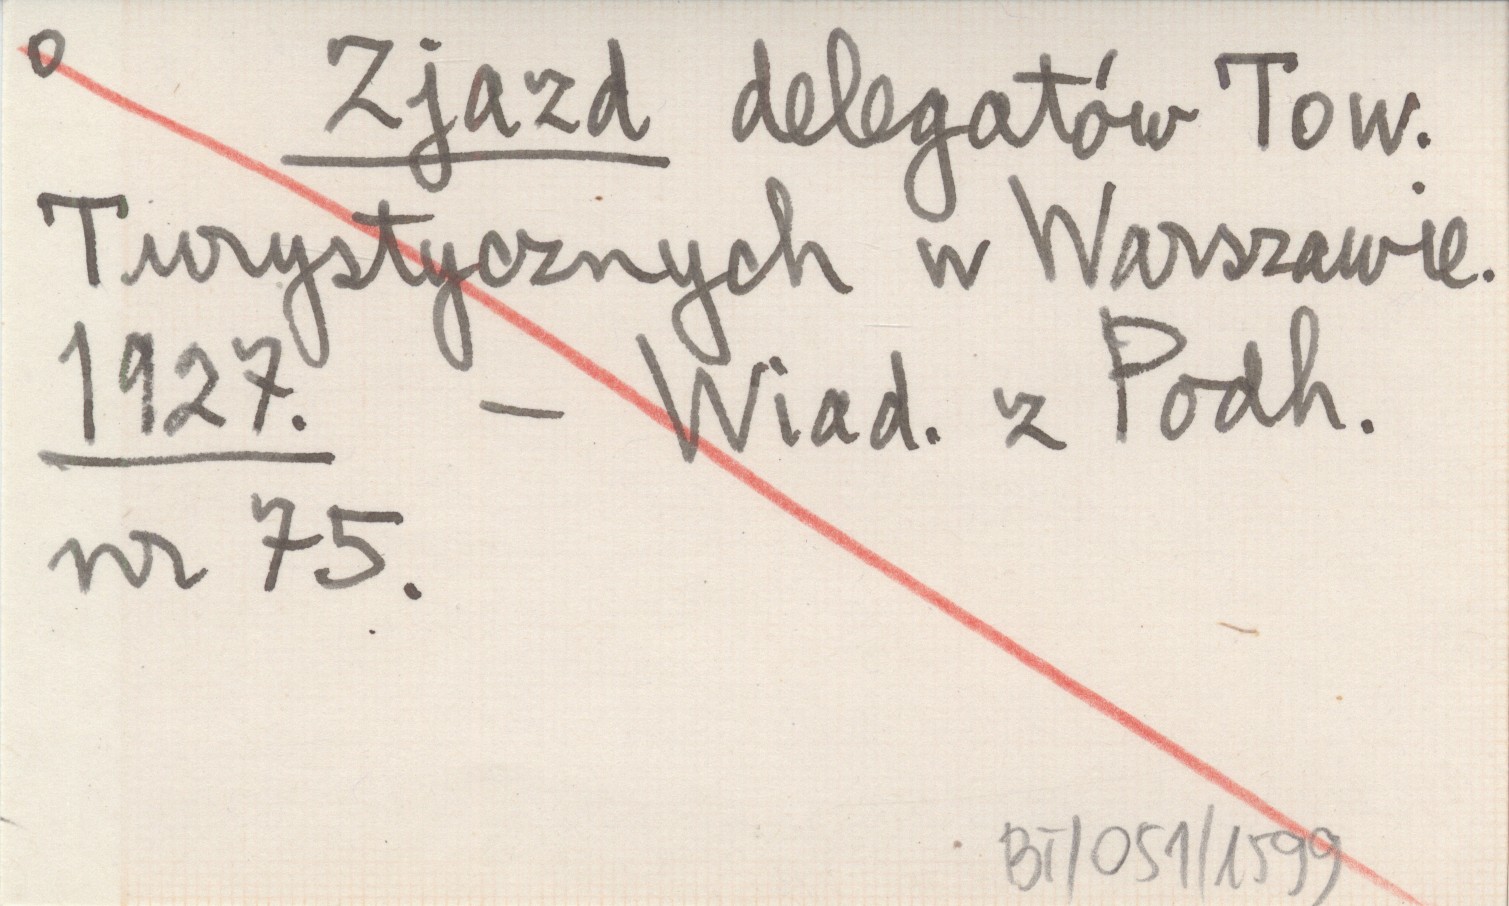 o Zjazd delegatów Tow.
Turystycznych w Warszawie.
1927. – Wiad. z Podh.
nr 75.
BT/051/1599